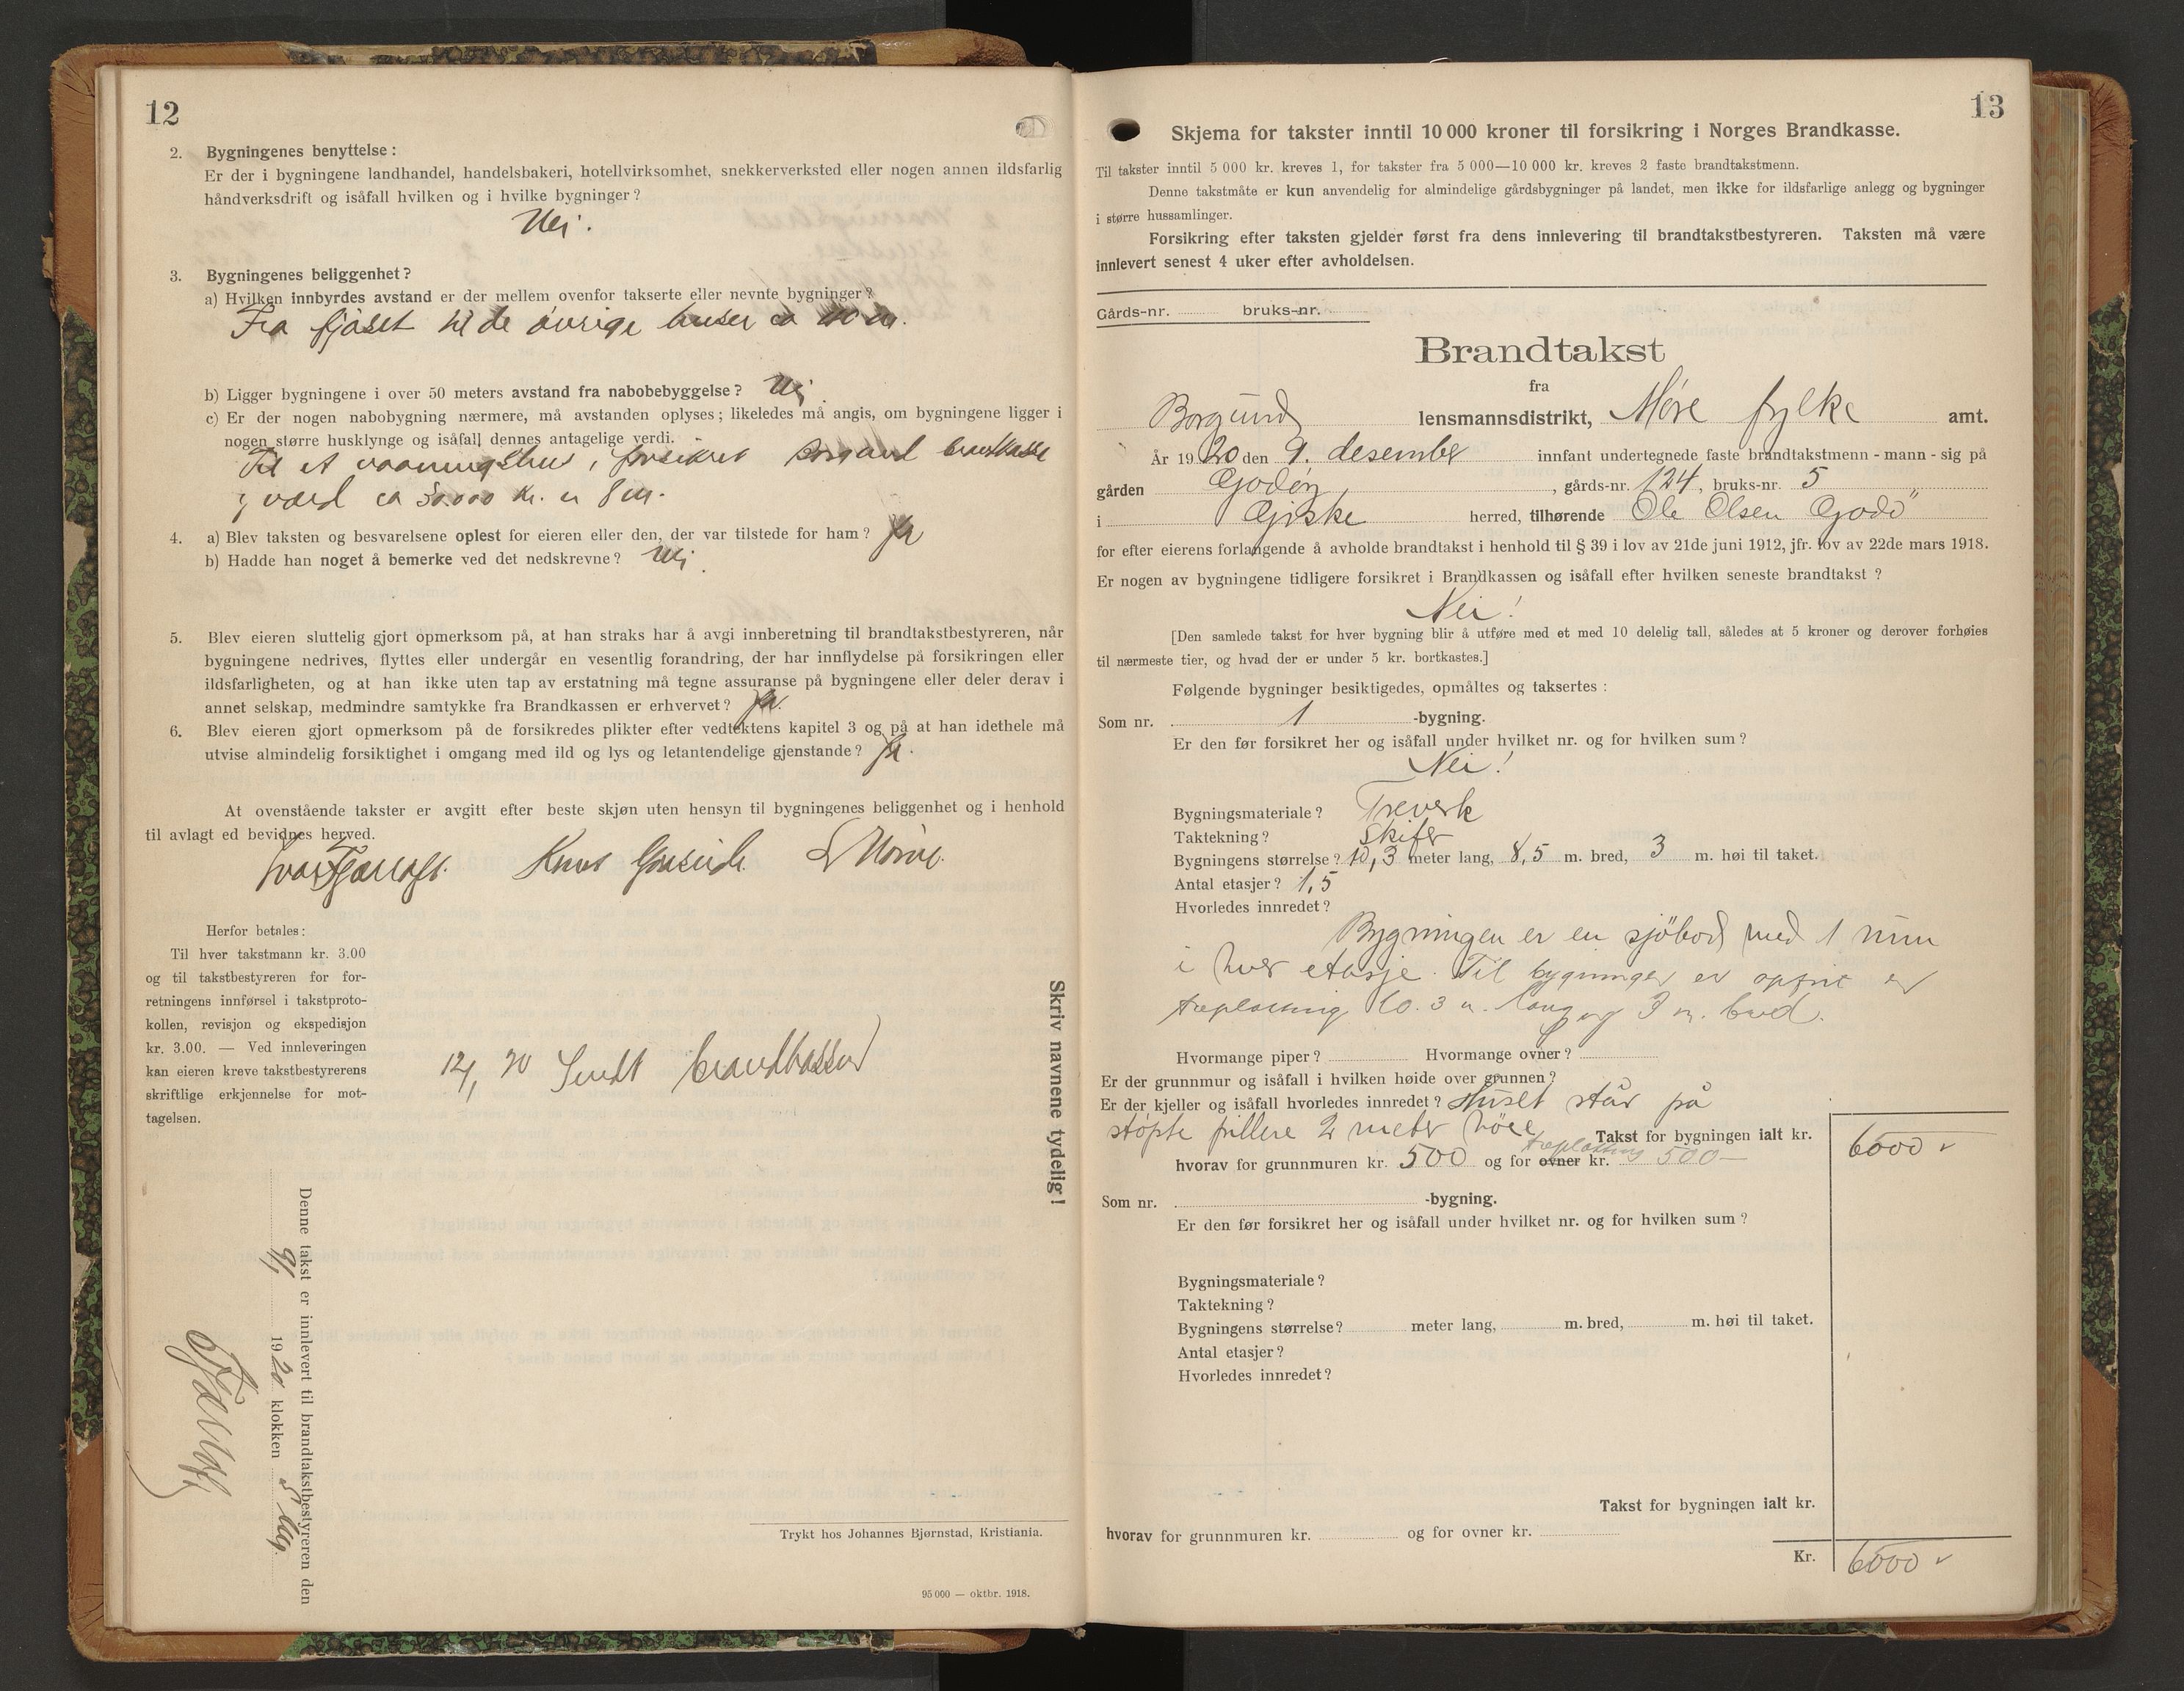 12
2. Bygningenes benyttelse:
Er der i bygningene landhandel, handelsbakeri, hotellvirksomhet, snekkerverksted eller nogen annen ildsfarlig
håndverksdrift og isåfall hvilken og i hvilke bygninger?
Nei.
3. Bygningenes beliggenhet?
a) Hvilken innbyrdes avstand er der mellem ovenfor takserte eller nevnte bygninger?
Fra fjöset til de övrige huser ca 10 m.
b) Ligger bygningene i over 50 meters avstand fra nabobebyggelse? Nei.
c) Er der nogen nabobygning nærmere, må avstanden oplyses; likeledes må angis, om bygningene ligger i
nogen større husklynge og isåfall dennes antagelige verdi.
Til et vaaningshus, forsikret Borgund brandkasse
værd ca kr. er 8 m.
4. a) Blev taksten og besvarelsene oplest for eieren eller den, der var tilstede for ham? Ja
b) Hadde han noget å bemerke ved det nedskrevne? Nei.
5. Blev eieren sluttelig gjort opmerksom på, at han straks har å avgi innberetning til brandtakstbestyreren, når
bygningene nedrives, flyttes eller undergår en vesentlig forandring, der har innflydelse på forsikringen eller
ildsfarligheten, og at han ikke uten tap av erstatning må tegne assuranse på bygningene eller deler derav i
annet selskap, medmindre samtykke fra Brandkassen er erhvervet? Ja.
6. Blev eieren gjort opmerksom på de forsikredes plikter efter vedtektens kapitel 3 og på at han idethele må
utvise almindelig forsiktighet i omgang med ild og lys og letantendelige gjenstande? Ja.
At ovenstående takster er avgitt efter beste skjøn uten hensyn til bygningenes beliggenhet og i henhold
til avlagt ed bevidnes herved.
Knut
Herfor betales:
Til hver takstmann kr. 3.00
og til takstbestyreren for for-
retningens innførsel i takstproto-
kollen, revisjon og ekspedisjon
kr. 3.00. — Ved innleveringen
kan eieren kreve takstbestyrerens
skriftlige erkjennelse for mot-
tagelsen.
Sendt brandkassen
Skriv navnene tydelig!
Denne takst er innlevert til brandtakstbestyreren den
9/1 1920 klokken 5
Trykt hos Johannes Bjørnstad, Kristiania.
95 000 — oktbr. 1918.
13
Skjema for takster inntil 10 000 kroner til forsikring i Norges Brandkasse.
Til takster inntil 5 000 kr. kreves 1, for takster fra 5 000—10 000 kr. kreves 2 faste brandtakstmenn.
Denne takstmåte er kun anvendelig for almindelige gårdsbygninger på landet, men ikke for ildsfarlige anlegg og bygninger
i større hussamlinger.
Forsikring efter taksten gjelder først fra dens innlevering til brandtakstbestyreren. Taksten må være
innlevert senest 4 uker efter avholdelsen.
Gårds-nr. bruks-nr.
Brandtakst
fra
Borgund lensmannsdistrikt, Møre fylke amt.
År 1920 den 9. desember innfant undertegnede faste brandtakstmenn - mann - sig på
gården Godöy, gårds-nr. 124, bruks-nr. 5
i Giske herred, tilhørende Ole Olsen Godö
for efter eierens forlangende å avholde brandtakst i henhold til § 39 i lov av 21de juni 1912, jfr. lov av 22de mars 1918.
Er nogen av bygningene tidligere forsikret i Brandkassen og isåfall efter hvilken seneste brandtakst?
Nei!
[Den samlede takst for hver bygning blir å utføre med et med 10 delelig tall, således at 5 kroner og derover forhøies
til nærmeste tier, og hvad der er under 5 kr. bortkastes.]
Følgende bygninger besiktigedes, opmåltes og taksertes:
Som nr. 1 -bygning.
Er den før forsikret her og isåfall under hvilket nr. og for hvilken sum?
Nei!
Bygningsmateriale? Treverk
Taktekning? Skifer
Bygningens størrelse? 10,3 meter lang, 8,5 m. bred, 3 m. høi til taket.
Antal etasjer? 1,5
Hvorledes innredet?
Bygningen er en sjöbod med 1 rum
i hver etasje. Til bygningen er opfört en
træplatting 10.3 m. lang og 3 m. bred.
Hvormange piper? Hvormange ovner?
Er der grunnmur og isåfall i hvilken høide over grunnen?
Er der kjeller og isåfall hvorledes innredet? Huset står på
stöpte pillere 2 meter höie
Takst for bygningen ialt kr. 6000
hvorav for grunnmuren kr. 500 og for ovner træplatting kr. 500—
Som nr. -bygning.
Er den før forsikret her og isåfall under hvilket nr. og for hvilken sum?
Bygningsmateriale?
Taktekning?
Bygningens størrelse? meter lang, m. bred, m. høi til taket.
Antal etasjer?
Hvorledes innredet?
Takst for bygningen ialt kr.
hvorav for grunnmuren kr. og for ovner kr.
Kr. 6000